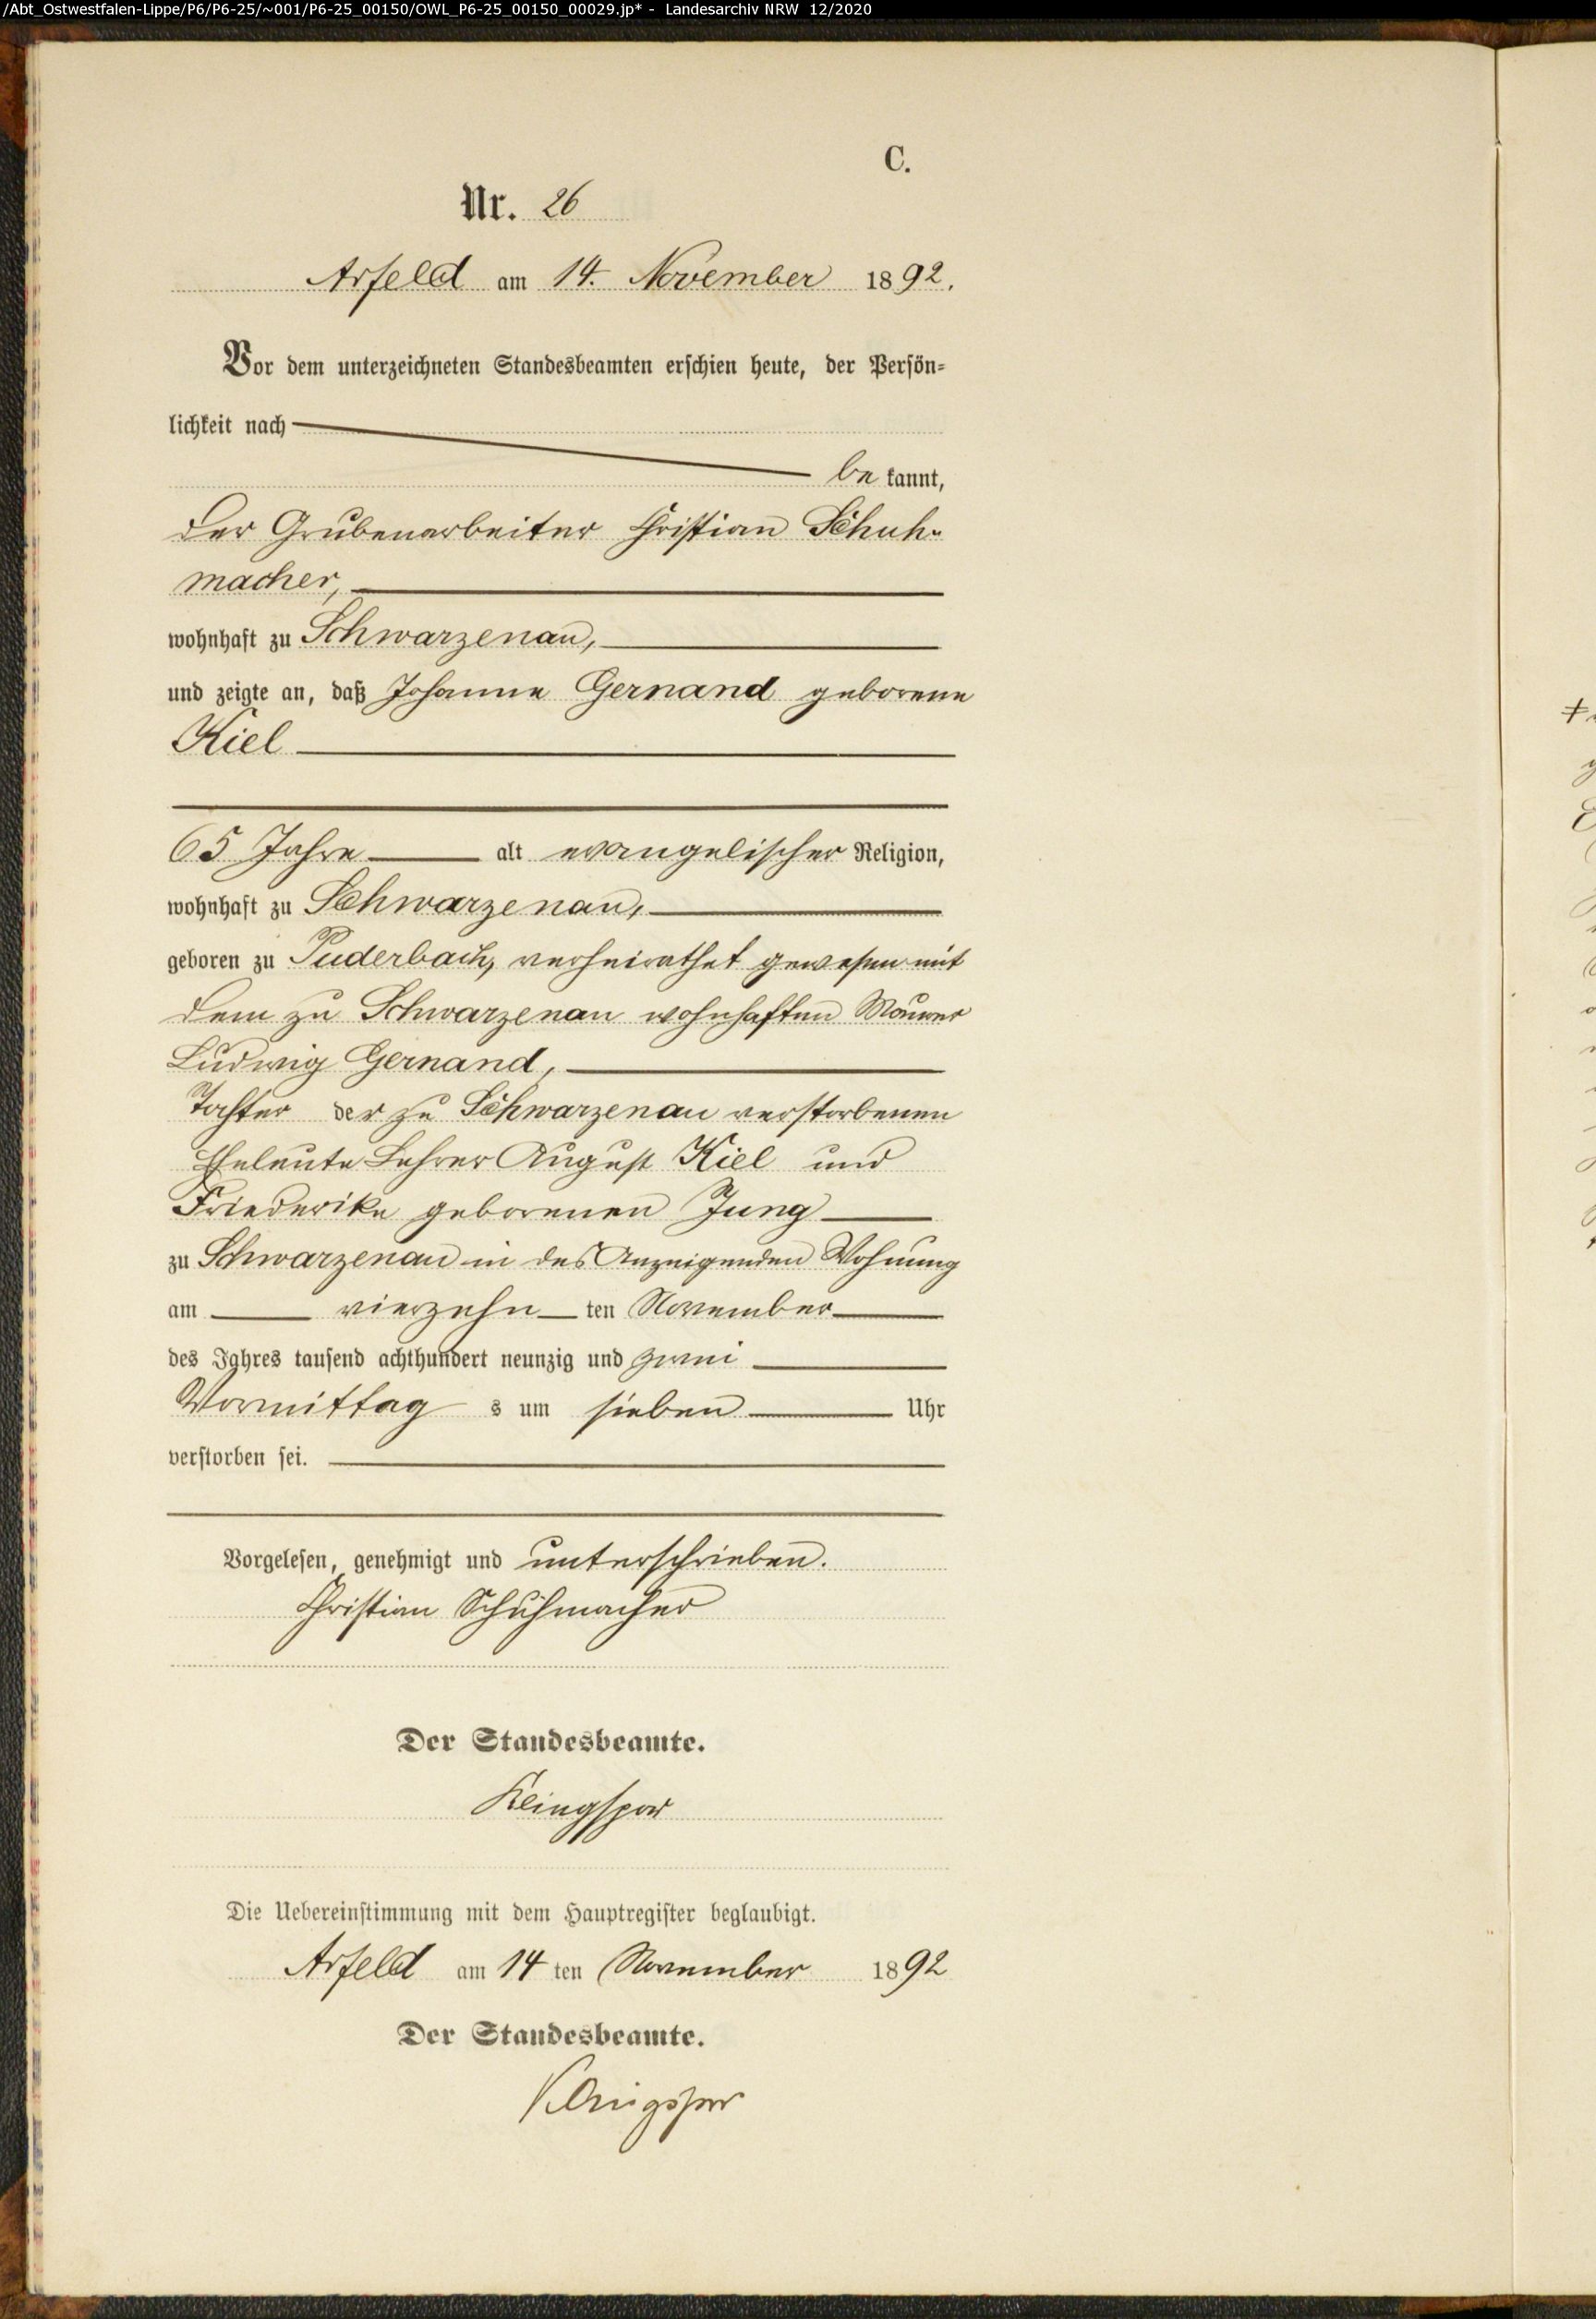 /Abt_Ostwestfalen-Lippe/P6/P6-25/~001/P6-25_00150/OWL_P6-25_00150_00029.jp* - Landesarchiv NRW 12/2020
C.
Nr. 26
Arfeld am 14. November 1892.
Vor dem unterzeichneten Standesbeamten erschien heute, der Persön-
lichkeit nach
be kannt,
der Grubenarbeiter Christian Schuh-
macher,
wohnhaft zu Schwarzenau,
und zeigte an, daß Johanne Gernand geborene
Kiel
65 Jahre alt evangelischer Religion,
wohnhaft zu Schwarzenau,
geboren zu Puderbach, verheirathet gewesen mit
dem zu Schwarzenau wohnhaften Maurer
Ludwig Gernand,
Tochter der zu Schwarzenau verstorbenen
Eheleute Lehrer August Kiel und
Friederike geborenen Jung
zu Schwarzenau in des Anzeigenden Wohnung
am vierzehn ten November
des Jahres tausend achthundert neunzig und zwei
Vormittag s um sieben Uhr
verstorben sei.
Vorgelesen, genehmigt und unterschrieben.
Christian Schuhmacher
Der Standesbeamte.
Klingspor
Die Uebereinstimmung mit dem Hauptregister beglaubigt.
Arfeld am 14 ten November 1892
Der Standesbeamte.
Klingspor